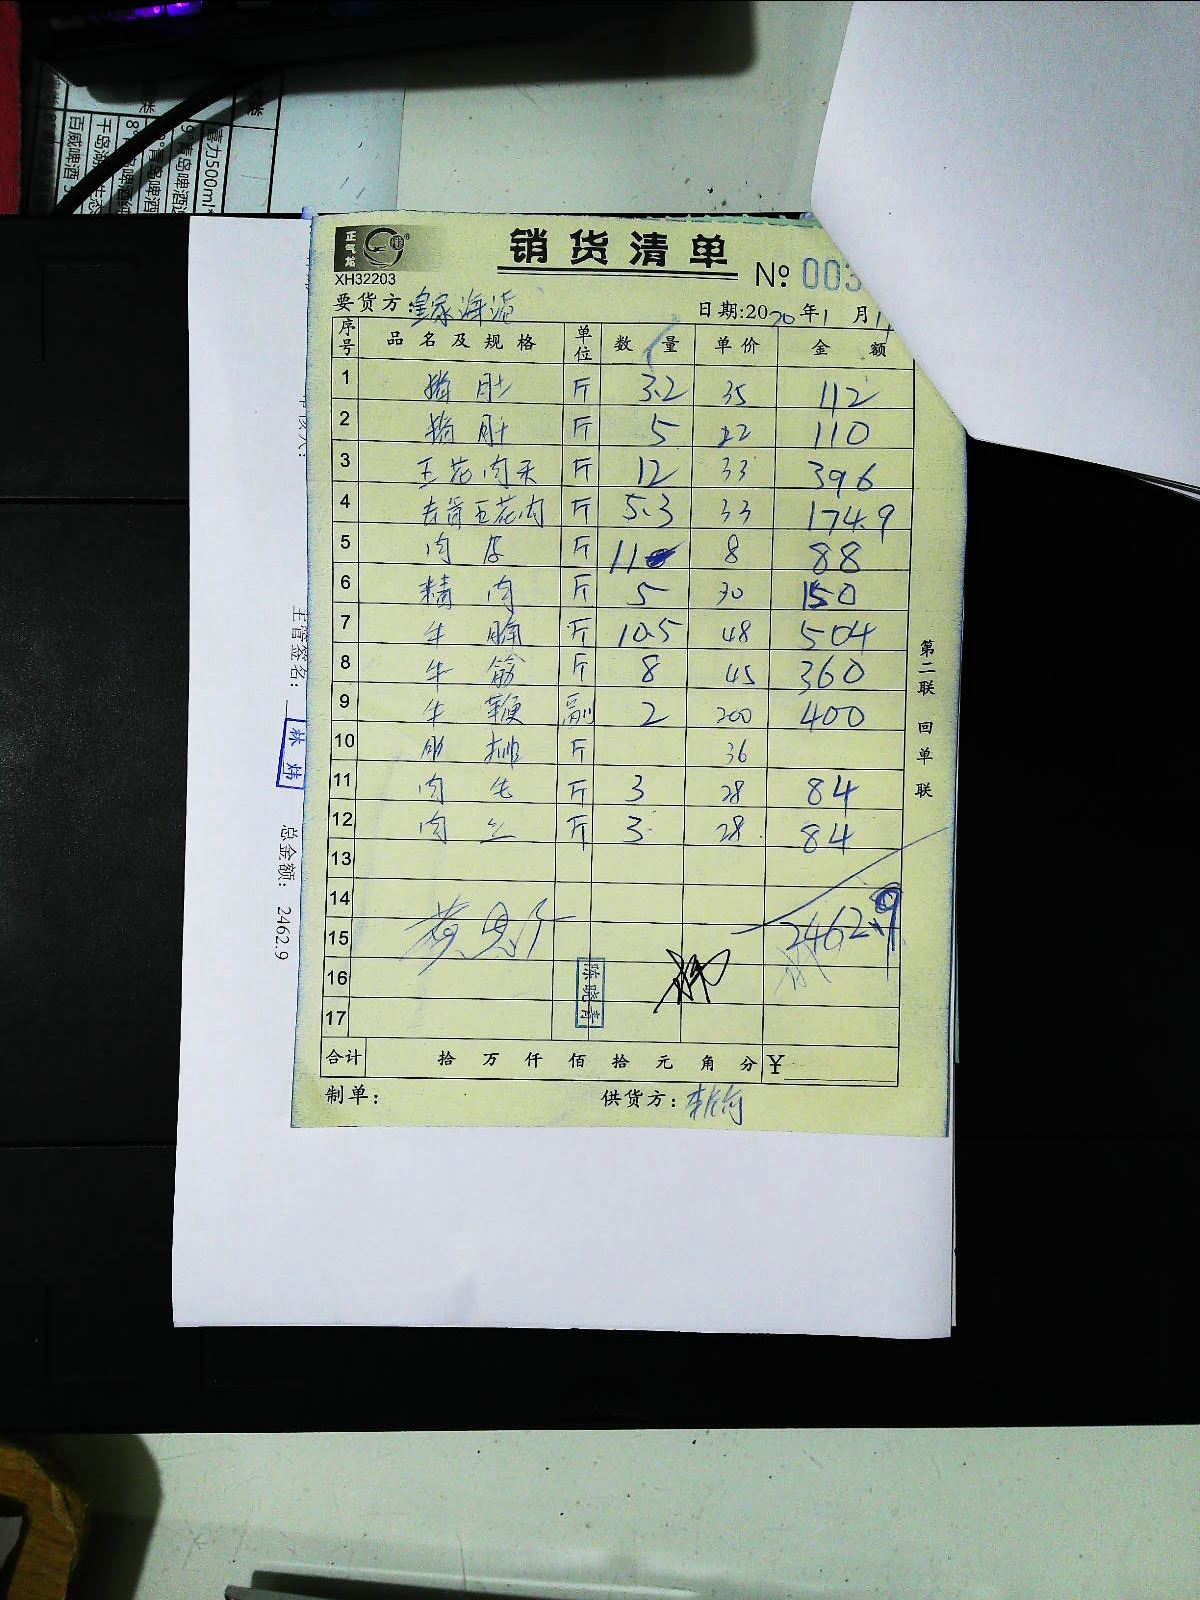 正气龙
XH32203
销货清单
№ 003
要货方:皇家海港 日期:2020年1月1
序号 品名及规格 单位 数量 单价 金额
1 猪肚 斤 3.2 35 112
2 猪肚 斤 5 22 110
3 五花肉 斤 12 33 396
4 五花肉 斤 5.3 33 174.9
5 肉 斤 11 8 88
6 精肉 斤 5 30 150
7 牛腩 斤 10.5 48 504
8 牛筋 斤 8 45 360
9 牛鞭 副 2 200 400
10 肋排 斤 36
11 肉 斤 3 28 84
12 肉丝 斤 3 28 84
13
14
15 2462.9
16
17
陈晓青
合计 拾万仟佰拾元角分 ¥
制单: 供货方:
第二联 回单联
主管签名:
林炜
总金额: 2462.9
百威啤酒
千岛湖
8°
9°青岛啤酒
青岛啤酒
500ml*